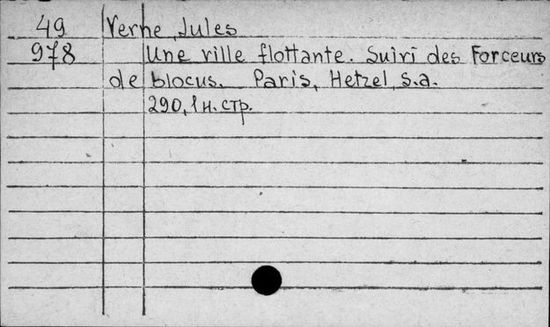 49 Verne, Jules
978 Une ville flottante. Suivi des Forceurs
de blocus. Paris, Hetzel, s.a.
290, 1 н. стр.